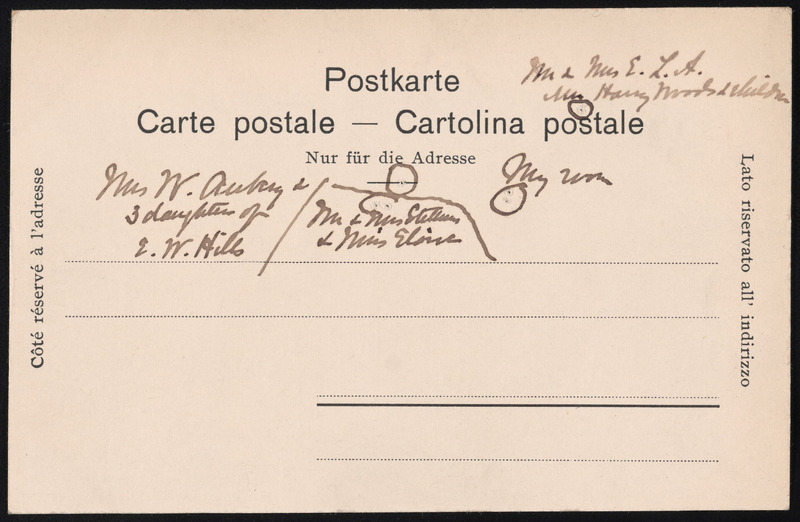 Mr & Mrs E. L. A.
Mrs Harry Woods & children
Postkarte
Carte postale — Cartolina postale
Nur für die Adresse
My room
Mrs W. &
3 daughters of
E. W. Hills
Mr & Mrs
& Miss Eloise
Côté réservé à l'adresse
Lato riservato all' indirizzo